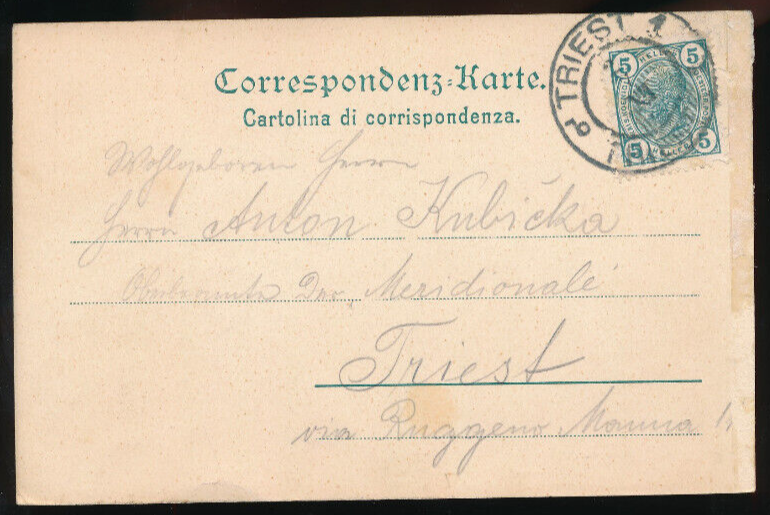 Correspondenz-Karte.
Cartolina di corrispondenza.
TRIEST 1
5 5
5 5
Wohlgeboren Herrn
Herrn Anton Kubička
der Meridionale
Triest
via Ruggero Manna